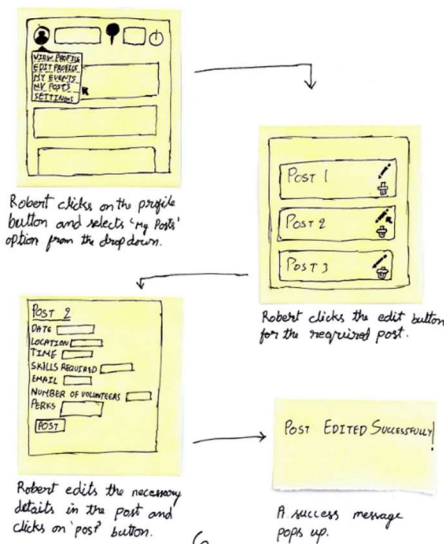 VIEW PROFILE
EDIT PROFILE
MY EVENTS
MY POSTS
SETTINGS
Robert clicks on the profile
button and selects 'My Posts'
option from the dropdown.
POST 1
POST 2
POST 3
Robert clicks the edit button
for the required post.
POST 2
DATE
LOCATION
TIME
SKILLS REQUIRED
EMAIL
NUMBER OF VOLUNTEERS
PERKS
POST
Robert edits the necessary
details in the post and
clicks on 'post' button.
POST EDITED SUCCESSFULLY!
A success message
pops up.